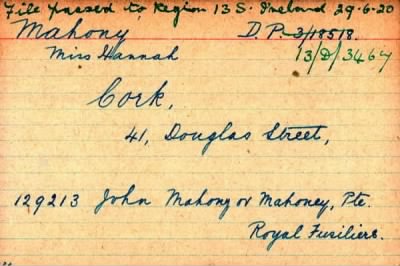 File passed to Region 13 S. Ireland 29-6-20
Mahony D.P. 3/18518.
Miss Hannah 13/D/3467
Cork,
41, Douglas Street,
129213 John Mahony or Mahoney, Pte.
Royal Fusiliers.